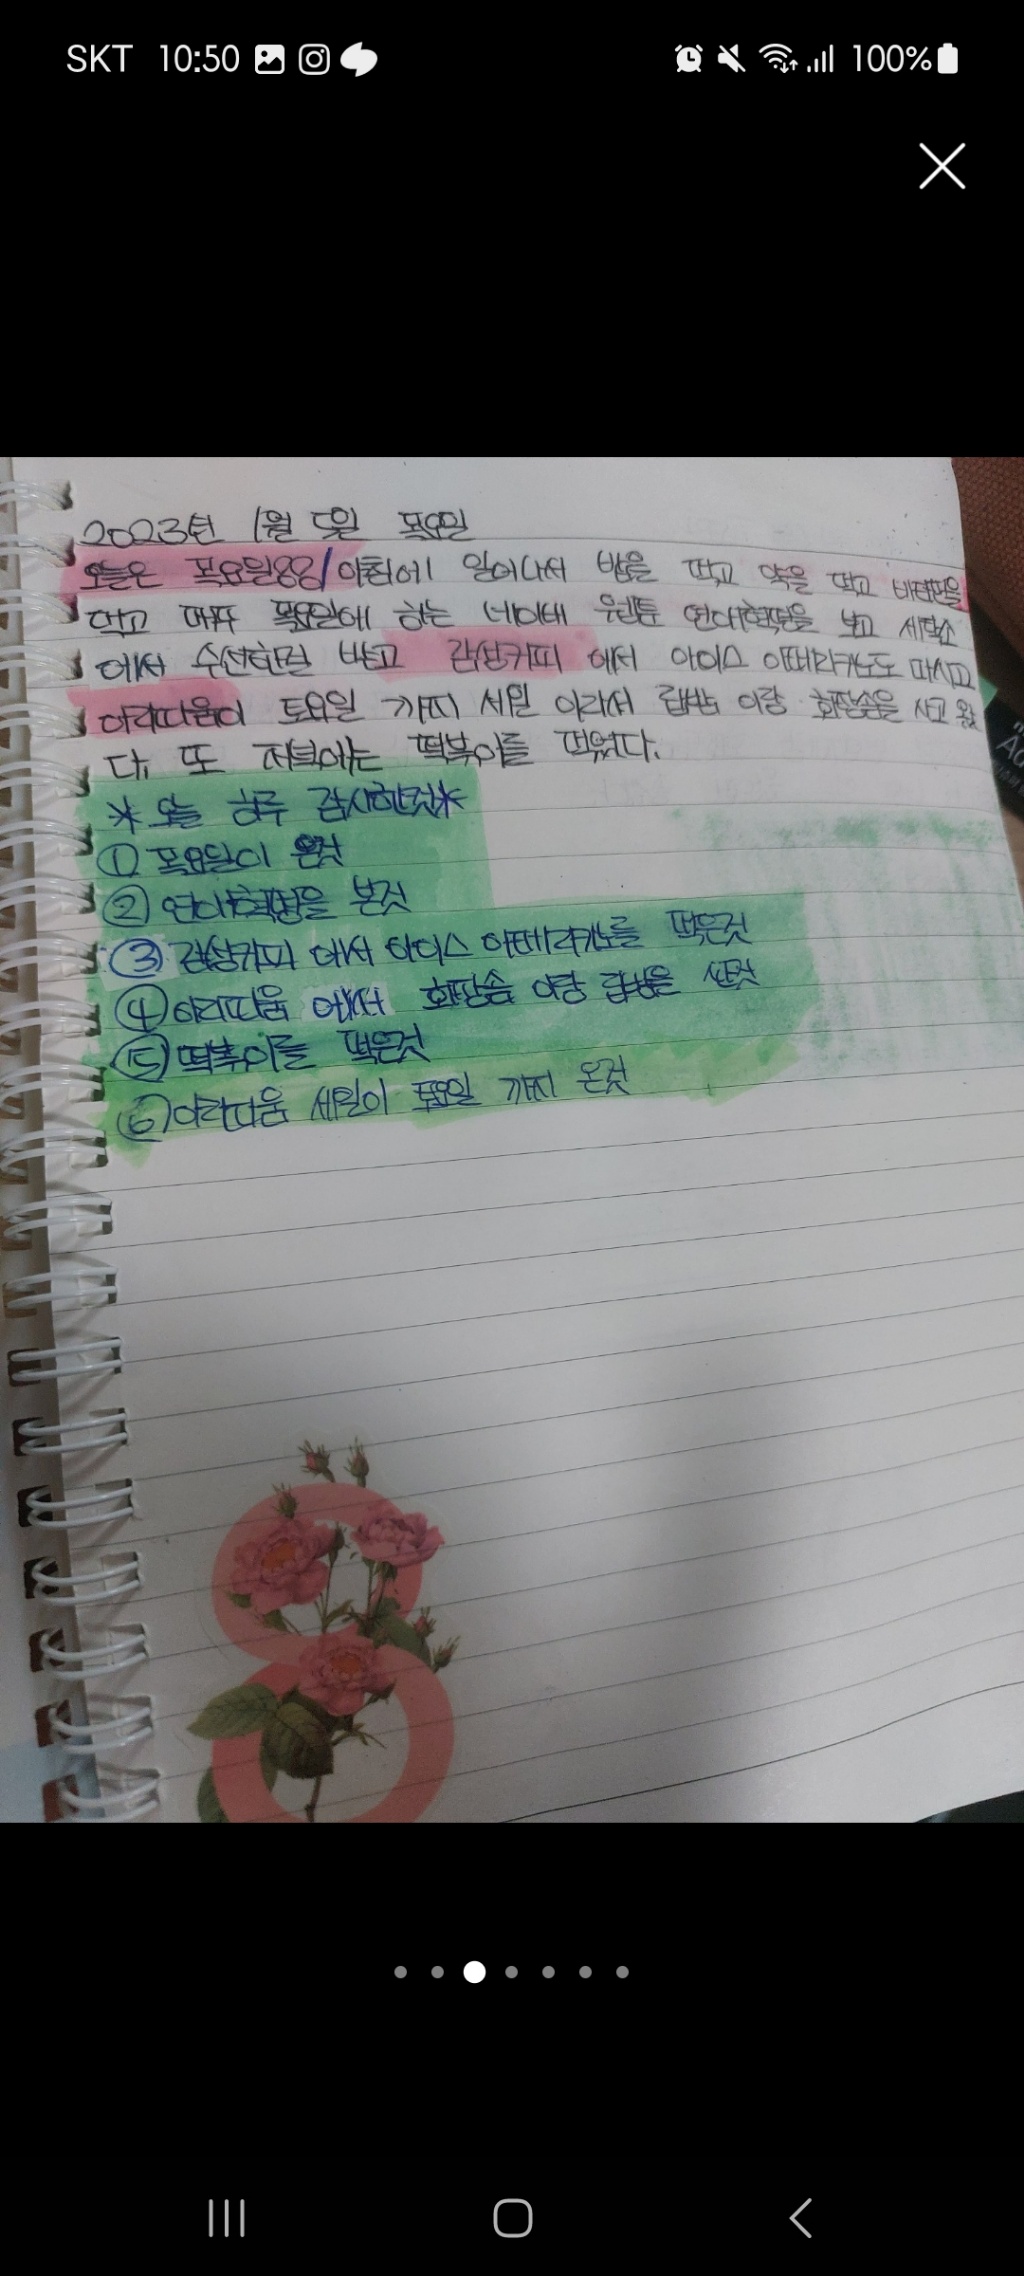 SKT 10:50 100%
2023년 1월 5일 목요일
오늘은 목요일 아침에 일어나서 밥을 먹고 약을 먹고 비타민을
먹고 매주 목요일에 하는 네이버 웹툰 연애혁명을 보고 세탁소
에서 수선한걸 받고 감성커피 에서 아이스 아메리카노도 마시고
아리따움이 토요일 까지 세일 이라서 립밤 이랑 화장솜을 사고 왔
다. 또 저녁에는 떡볶이를 먹었다.
*오늘 하루 감사한것*
① 목요일이 온것
② 연애혁명을 본것
③ 감성커피 에서 아이스 아메리카노를 먹은것
④ 아리따움 에서 화장솜 이랑 립밤을 산것
⑤ 떡볶이를 먹은것
⑥ 아리따움 세일이 토요일 까지 온것
8